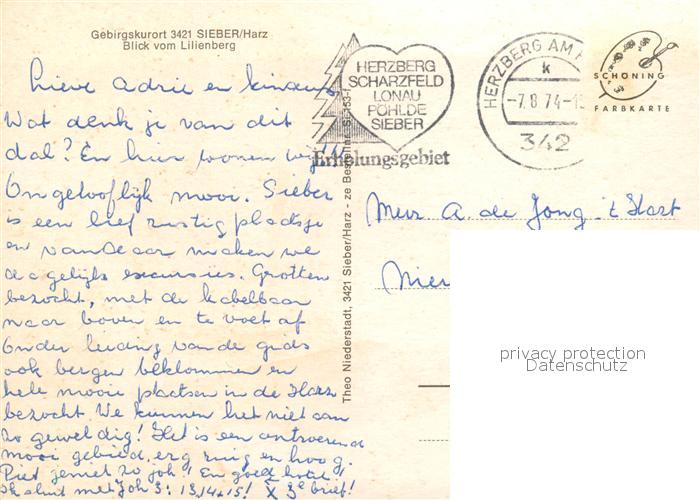 Gebirgskurort 3421 SIEBER/Harz
Blick vom Lilienberg
Lieve Adrie en kinders
Wat denk je van dit
dal? En hier wonen wij!
Ongelooflijk mooi. Sieber
is een lief rustig plaatsje
en vandaar maken we
dagelijks excursies. Grotten
bezocht, met de kabelbaan
naar boven en te voet af
Onder leiding van de gids
ook bergen beklommen en
hele mooie plaatsen in de Harz
bezocht We kunnen het niet aan
zo geweldig! Het is een ontroerend
mooi gebied, erg ruig en hoog.
Piet geniet zo joh! En goed
Ik sluit met Joh 3: 13,14,15! X 3e brief!
Theo Niederstadt, 3421 Sieber/Harz
HERZBERG
SCHARZFELD
LONAU
PÖHLDE
SIEBER
Erholungsgebiet
HERZBERG AM
k
-7.8.74-1
342
SCHÖNING
FARBKARTE
Mevr A. de Jong 't Hart
privacy protection
Datenschutz